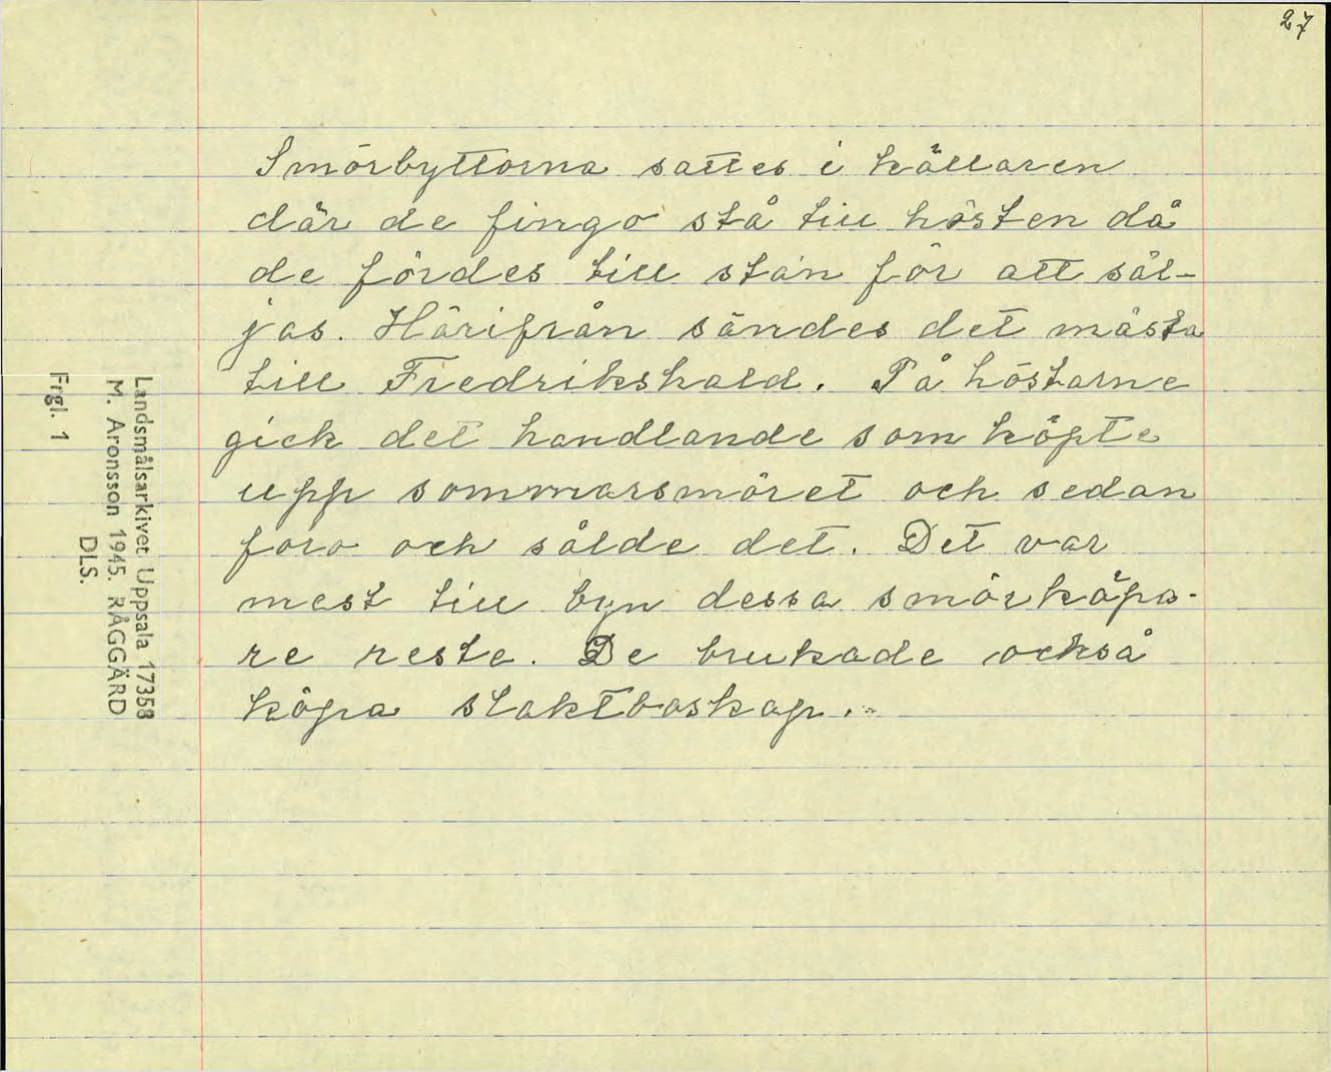 27
Smörbyttorna sattes i källaren
där de fingo stå till hösten då
de fördes till stan för att säl-
jas. Härifrån sändes det mästa
till Fredrikshald. På höstarne
gick det handlande som köpte
upp sommarsmöret och sedan
foro och sålde det. Det var
mest till byn dessa smörköpa-
re reste. De brukade också
köpa slaktboskap.
Landsmålsarkivet Uppsala 17358
M. Aronsson 1945. RÅGGÄRD
DLS.
Frgl. 1